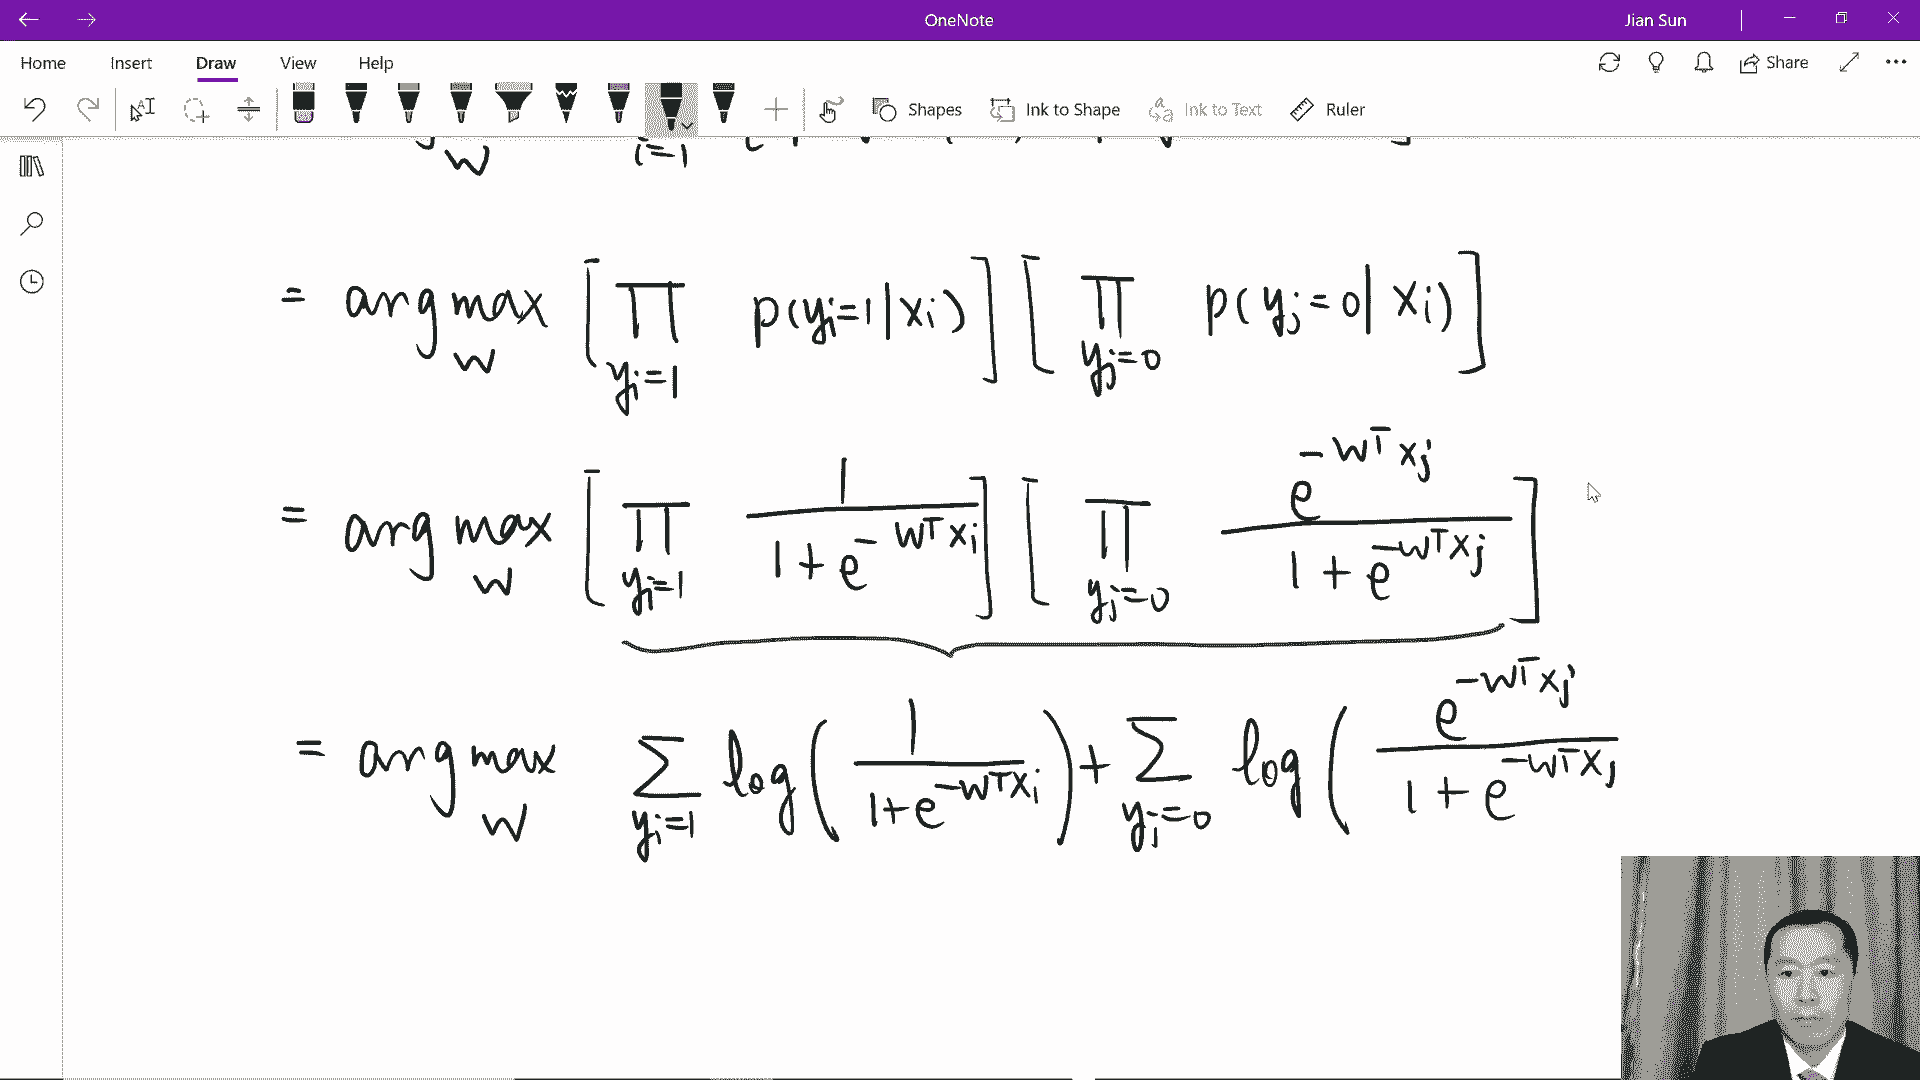 OneNote
Jian Sun
Home Insert Draw View Help Share
Shapes Ink to Shape Ink to Text Ruler
w i=1
= arg max_w [ ∏_{y_i=1} p(y_i=1|x_i) ] [ ∏_{y_j=0} p(y_j=0|x_i) ]
= arg max_w [ ∏_{y_i=1} 1/(1+e^{-w^T x_i}) ] [ ∏_{y_j=0} e^{-w^T x_j}/(1+e^{-w^T x_j}) ]
= arg max_w ∑_{y_i=1} log( 1/(1+e^{-w^T x_i}) ) + ∑_{y_j=0} log( e^{-w^T x_j}/(1+e^{-w^T x_j})